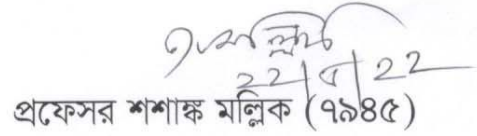 22/5/22
প্রফেসর শশাঙ্ক মল্লিক (৭৯৪৫)